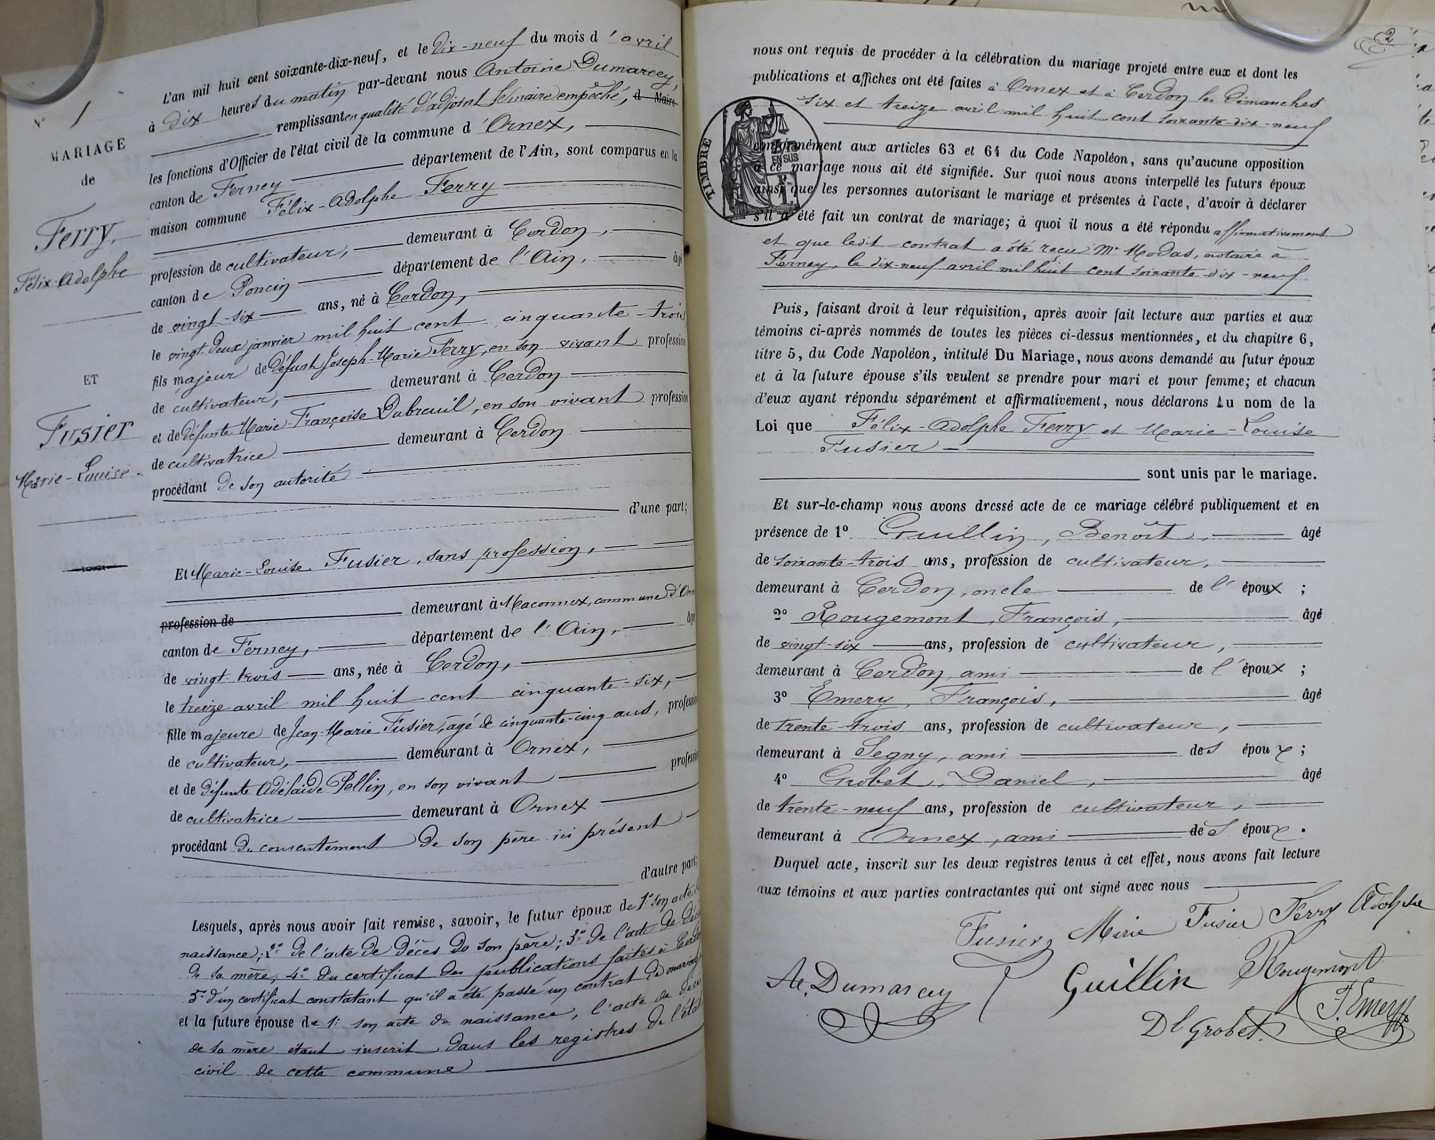 N° 1
MARIAGE
de
Ferry,
Félix-Adolphe
ET
Fusier
Marie-Louise
L'an mil huit cent soixante-dix-neuf, et le dix-neuf du mois d'avril
à dix heures du matin par-devant nous Antoine Dumarcey,
remplissant en qualité d'adjoint le maire empêché, d Maire
les fonctions d'Officier de l'état civil de la commune d'Ornex,
canton de Ferney département de l'Ain, sont comparus en la
maison commune Félix-Adolphe Ferry
profession de cultivateur, demeurant à Cerdon,
canton de Poncin département de l'Ain, âgé
de vingt-six ans, né à Cerdon,
le vingt-deux janvier mil huit cent cinquante-trois
fils majeur de défunt Joseph-Marie Ferry, en son vivant profession
de cultivateur, demeurant à Cerdon
et de défunte Marie-Françoise Dubreuil, en son vivant profession
de cultivatrice demeurant à Cerdon
procédant de son autorité
d'une part;
Et Marie-Louise Fusier, sans profession,
profession de demeurant à Maconnex, commune d'Ornex
canton de Ferney, département de l'Ain, âgé
de vingt-trois ans, née à Cerdon,
le treize avril mil huit cent cinquante-six,
fille majeure de Jean-Marie Fusier, âgé de cinquante-cinq ans, profession
de cultivateur, demeurant à Ornex,
et de défunte Adélaïde Pellin, en son vivant profession
de cultivatrice demeurant à Ornex
procédant du consentement de son père ici présent
d'autre part;
Lesquels, après nous avoir fait remise, savoir, le futur époux de 1° son acte de
naissance; 2° de l'acte de décès de son père; 3° de l'acte de décès
de sa mère, 4° du certificat des publications faites à Cerdon
5° d'un certificat constatant qu'il a été passé un contrat de mariage,
et la future épouse de 1° son acte de naissance, l'acte de décès
de sa mère étant inscrit dans les registres de l'état
civil de cette commune
2
nous ont requis de procéder à la célébration du mariage projeté entre eux et dont les
publications et affiches ont été faites à Ornex et à Cerdon les dimanches
six et treize avril mil huit cent soixante-dix-neuf
TIMBRE
EN SUS
conformément aux articles 63 et 64 du Code Napoléon, sans qu'aucune opposition
à ce mariage nous ait été signifiée. Sur quoi nous avons interpellé les futurs époux
ainsi que les personnes autorisant le mariage et présentes à l'acte, d'avoir à déclarer
s'il a été fait un contrat de mariage; à quoi il nous a été répondu affirmativement
et que ledit contrat a été reçu Mr Modas, notaire à
Ferney, le dix-neuf avril mil huit cent soixante-dix-neuf
Puis, faisant droit à leur réquisition, après avoir fait lecture aux parties et aux
témoins ci-après nommés de toutes les pièces ci-dessus mentionnées, et du chapitre 6,
titre 5, du Code Napoléon, intitulé Du Mariage, nous avons demandé au futur époux
et à la future épouse s'ils veulent se prendre pour mari et pour femme; et chacun
d'eux ayant répondu séparément et affirmativement, nous déclarons au nom de la
Loi que Félix-Adolphe Ferry et Marie-Louise
Fusier
sont unis par le mariage.
Et sur-le-champ nous avons dressé acte de ce mariage célébré publiquement et en
présence de 1° Guillin, Benoît, âgé
de soixante-trois ans, profession de cultivateur,
demeurant à Cerdon, oncle de l'époux ;
2° Rougemont, François, âgé
de vingt-six ans, profession de cultivateur,
demeurant à Cerdon, ami de l'époux ;
3° Emery, François, âgé
de trente-trois ans, profession de cultivateur,
demeurant à Segny, ami des époux ;
4° Grobet, Daniel, âgé
de trente-neuf ans, profession de cultivateur,
demeurant à Ornex, ami des époux.
Duquel acte, inscrit sur les deux registres tenus à cet effet, nous avons fait lecture
aux témoins et aux parties contractantes qui ont signé avec nous
Fusier Marie Fusier Ferry Adolphe
At. Dumarcey Guillin Rougemont
Dl Grobet. F. Emery